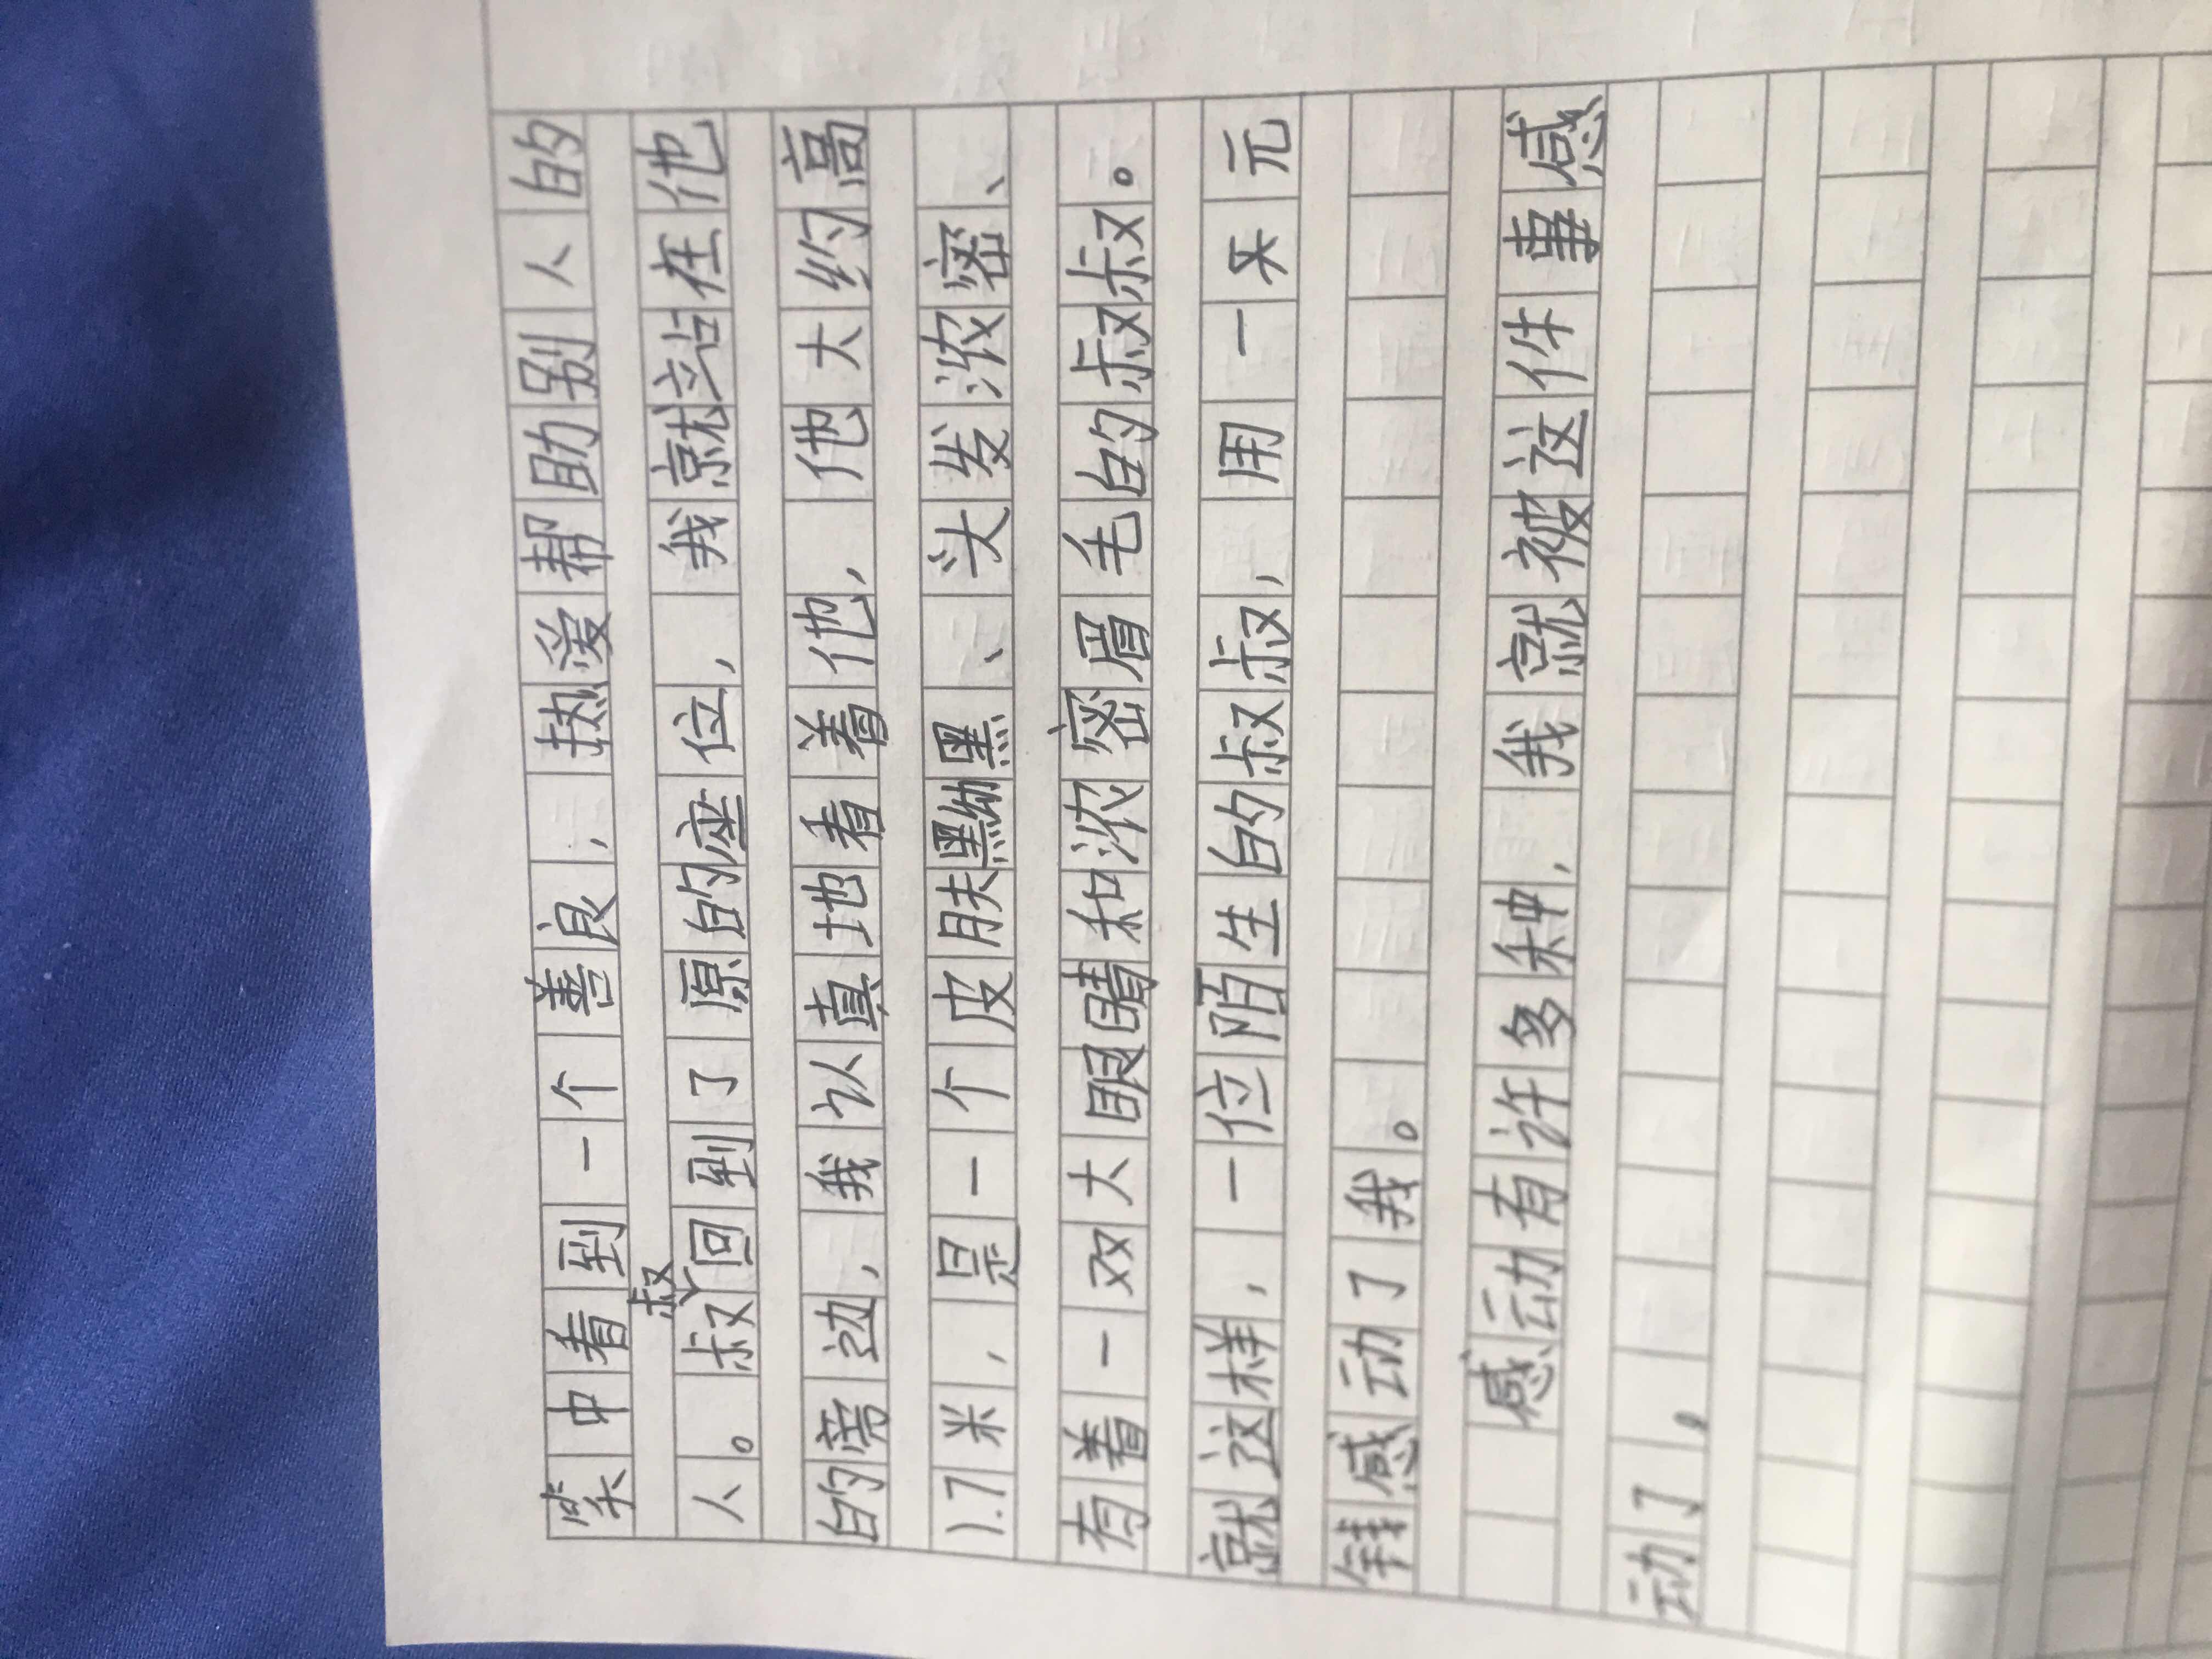 笑中看到一个善良,热爱帮助别人的
人。叔叔回到了原的座位,我就站在他
的旁边,我认真地看着他,他大约高
1.7米,是一个皮肤黝黑、头发浓密、
有着一双大眼睛和浓密眉毛的叔叔。
就这样,一位陌生的叔叔,用一头元
钱感动了我。
感动有许多种,我就被这件事感
动了,